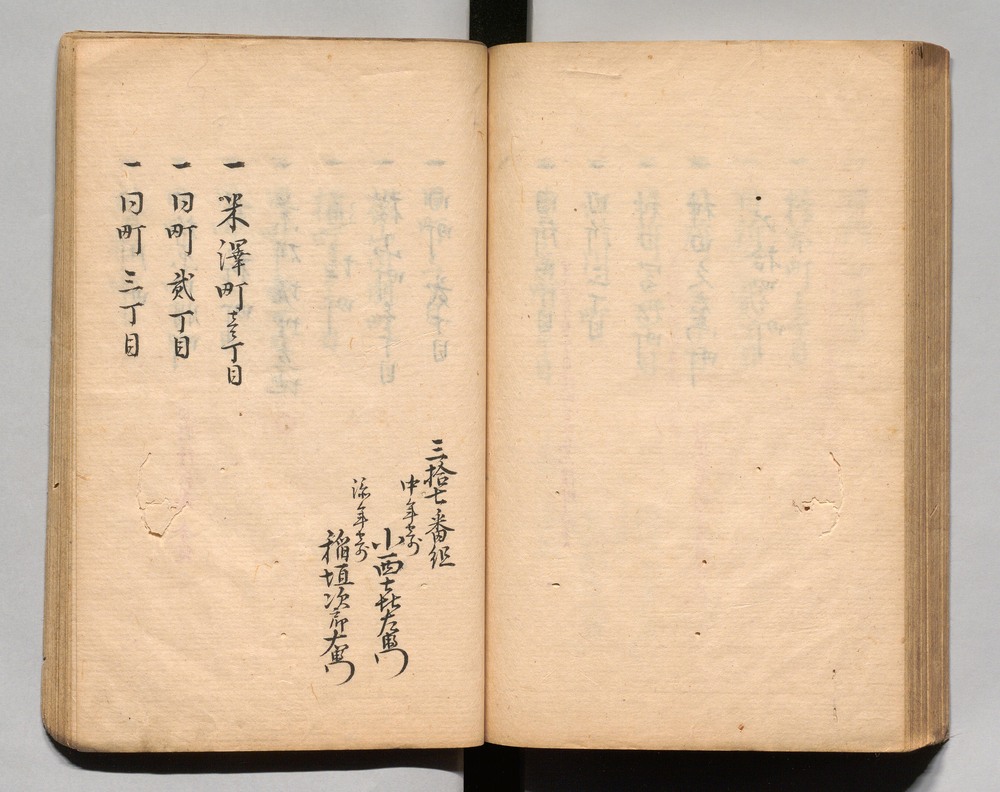 三拾七番組
中年寄
小西喜左衛門
添年寄
稲垣次郎右衛門
一 米澤町壹丁目
一 同町貳丁目
一 同町三丁目